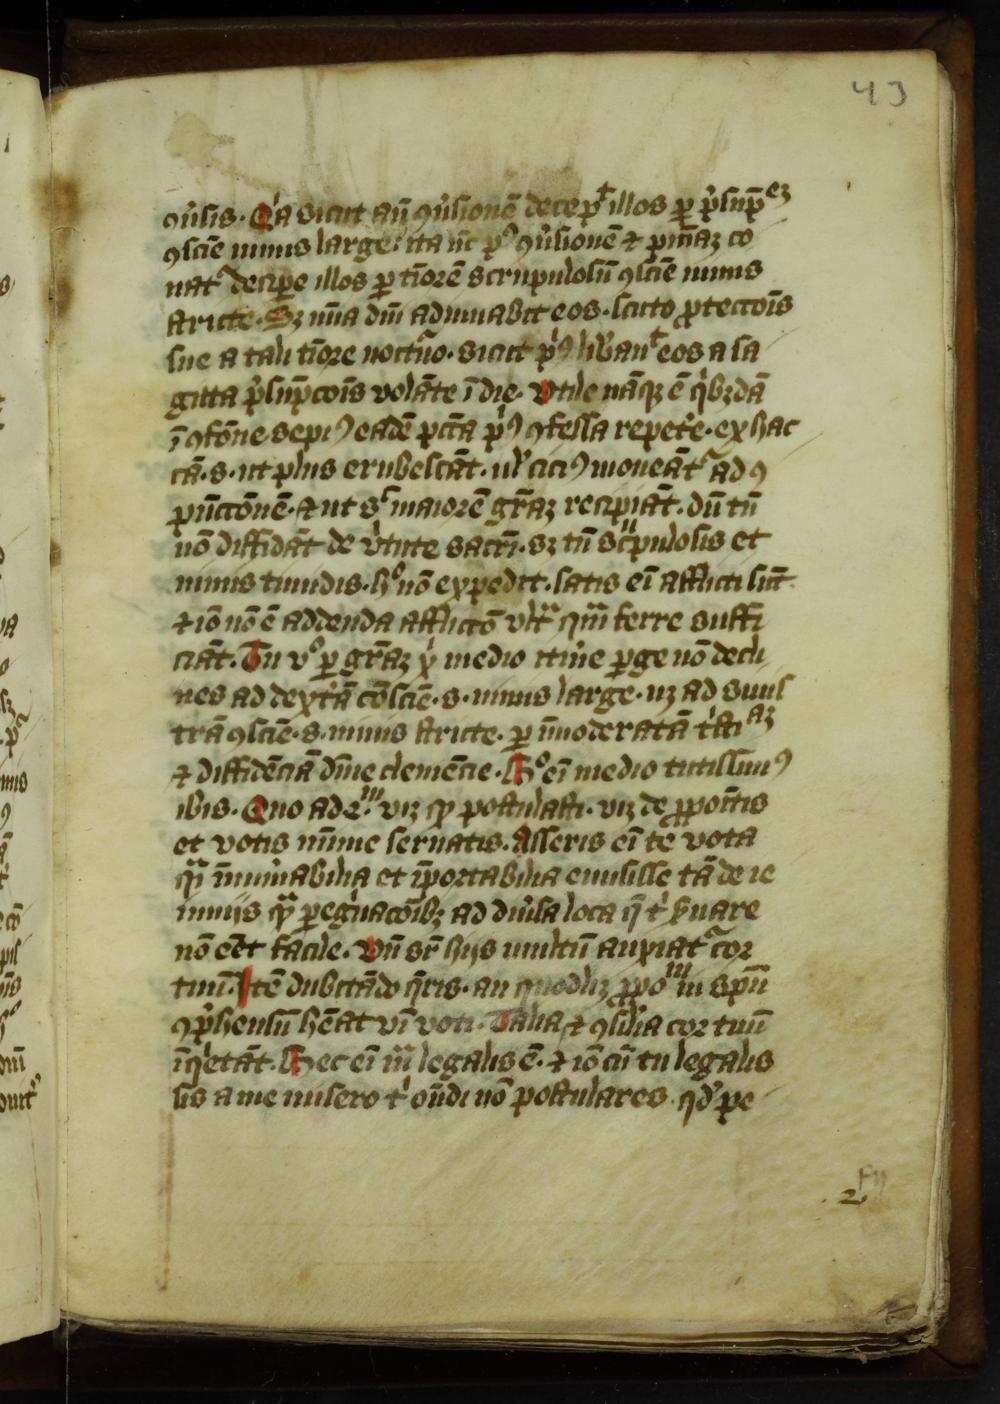 43
ꝯūsis. Qa sicut añ ꝯūsionē decepͭ illos ꝑ p̄sūp̄ez
ꝯsciē nimis large. ita nc̄ pꝰ ꝯūsionē ⁊ pnīaz co
natᷓ decipe illos ꝑ tiorē scrupulosū ꝯsciē nimis
stricte. Sz mīa dnī adiuuabit eos. scuto ꝓtectoīs
sue a tali tiore nocturno. sicut pꝰ libāuit eos a sa
gitta p̄sūpcoīs volāte ī die. Vtile nāqz ē qibzdā
ī ꝯfōne sepiꝰ eadē pctā piꝰ ꝯfessa repete. ex hac
cā. s. ut plus erubescāt. ul' ciciꝰ moueātᷓ ad ꝯ
pūctōnē. ⁊ ut sꝭ maiorē gr̄az recipiāt. dū tn̄
nō diffidāt de v̓tute sacr̄i. sz tn̄ sc̓pulosis et
nimis timidis. hꝰ nō expedit. satis eī afflicti sūt
⁊ iō nō ē addenda afflictō vltᷓ qᷓm ferre suffi
ciāt. Tu vº ꝑ gr̄az xp̄i medio itine ꝑge nō decli
nes ad dextᷓā cōsciē. s. nimis large. uz ad sinis
trā ꝯsciē. s. nimis stricte. ꝑ īmoderatā tristiciaz
⁊ diffidēciā dīne clemēcie. Hº eī medio tutissimꝰ
ibis. Quo ad 2m viz qꝫ postulasti. viz de ꝓpoītis
et votis nimie seruatis. Asseris eī te vota
qᷓi īnuīabilia et īportabilia emisisse tā de ie
iuniis qᷓ ꝑegⁱnacōibz ad diūsa loca q̄ t' ẜuare
nō eēt facile. Vn̄ sr̄ hiis multū anxiatᷓ cor
tuū. Itē dubitādo q̄ris. an quodlz ꝓpoᵐ in spū
ꝯp̄hensū hēat vī voti. Talia ⁊ ꝯsilia cor tuū
īqetāt. Hec eī mᷓ legalis ē. ⁊ iō cū tu legalis
sis a me misero t' oñdi nō postulares. qd' pe